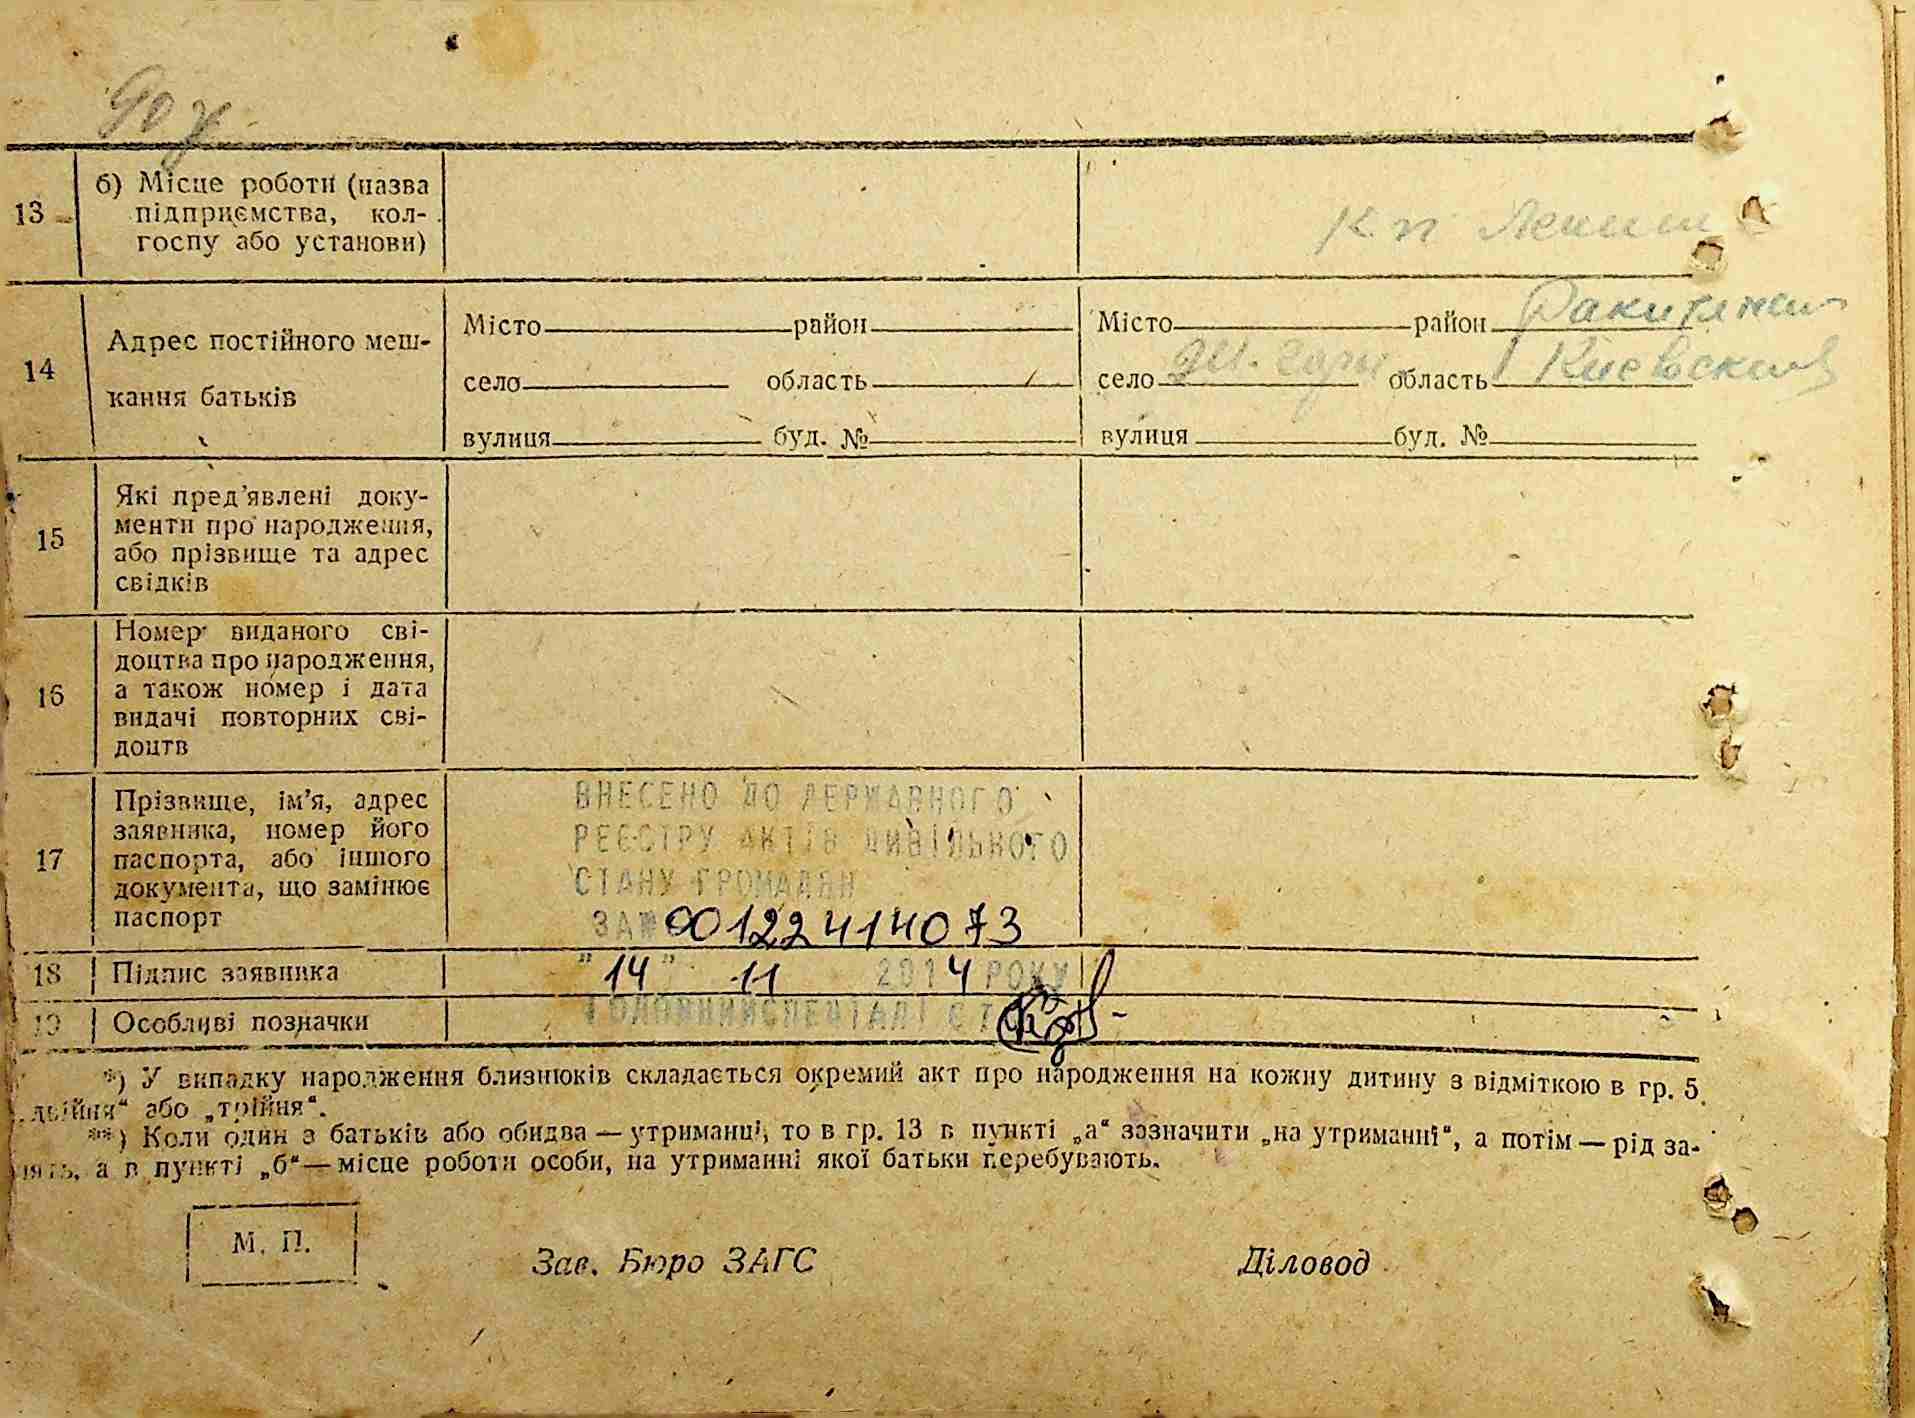 13
б) Місце роботи (назва
підприємства, кол-
госпу або установи)
к п Ленина
14
Адрес постійного меш-
кання батьків
Місто район
село область
вулиця буд. №
Місто район Ракитнян
село область Киевская
вулиця буд. №
15
Які пред'явлені доку-
менти про народження,
або прізвище та адрес
свідків
16
Номер виданого сві-
доцтва про народження,
а також номер і дата
видачі повторних сві-
доцтв
17
Прізвище, ім'я, адрес
заявника, номер його
паспорта, або іншого
документа, що замінює
паспорт
ВНЕСЕНО ДО ДЕРЖАВНОГО
РЕЄСТРУ АКТІВ ЦИВІЛЬНОГО
СТАНУ ГРОМАДЯН
ЗА № 00122414073
18 Підпис заявника
"14" 11 2014 РОКУ
19 Особливі позначки
ГОЛОВНИЙ СПЕЦІАЛІСТ
*) У випадку народження близнюків складається окремий акт про народження на кожну дитину з відміткою в гр. 5
„двійня“ або „трійня“.
**) Коли один з батьків або обидва — утриманці, то в гр. 13 в пункті „а“ зазначити „на утриманні“, а потім — рід за-
нять, а в пункті „б“ — місце роботи особи, на утриманні якої батьки перебувають.
М. П.
Зав. Бюро ЗАГС
Діловод